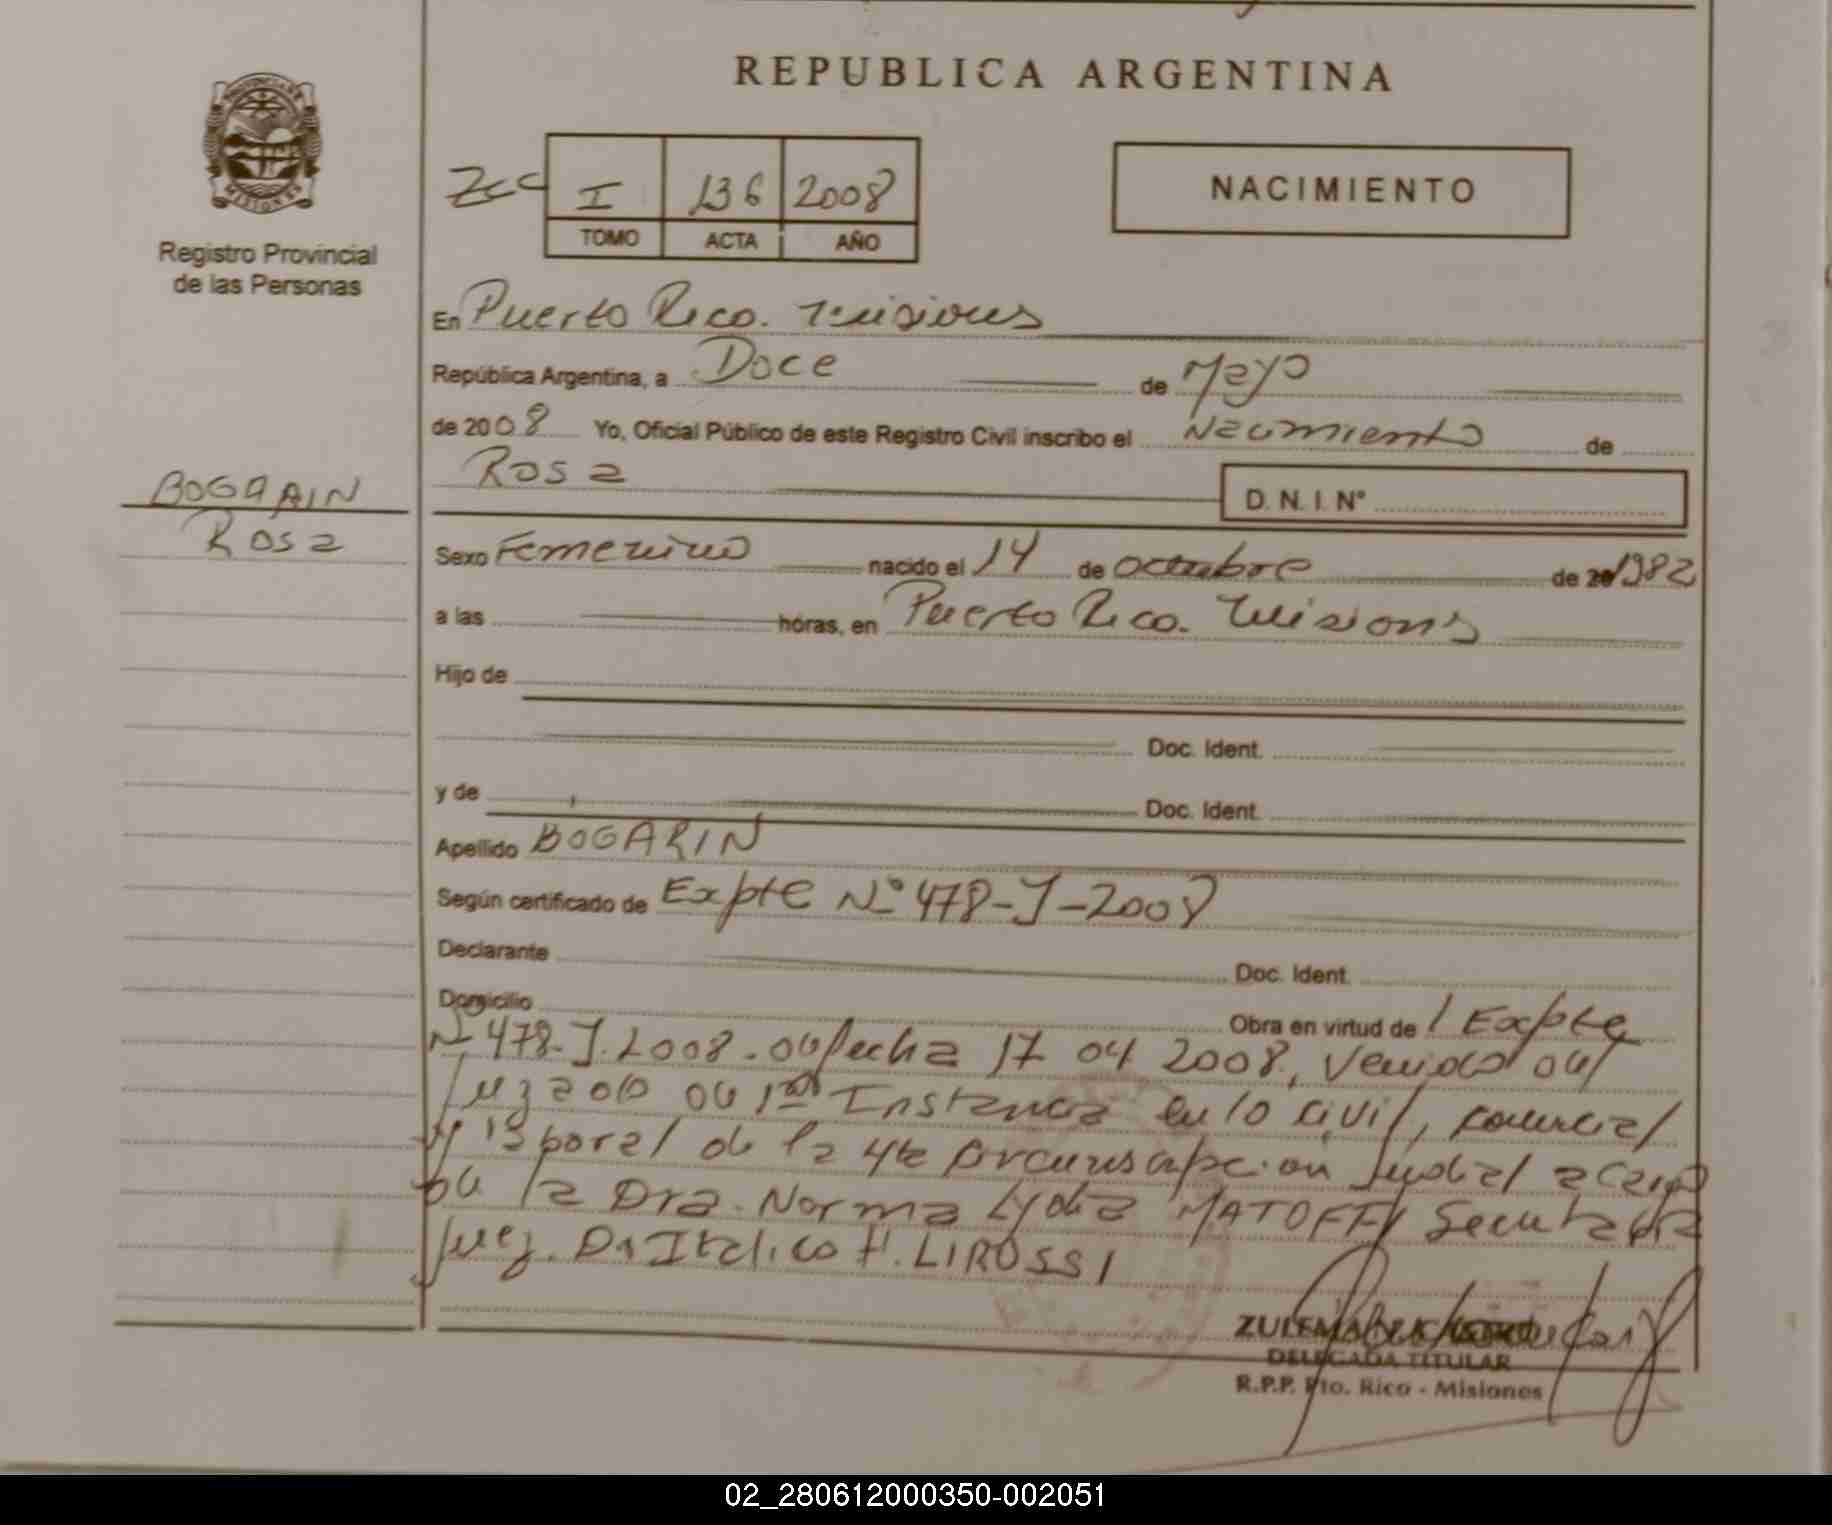 REPUBLICA ARGENTINA
PROVINCIA DE
MISIONES
Registro Provincial
de las Personas
I 136 2008
TOMO ACTA AÑO
NACIMIENTO
En Puerto Rico. Misiones
República Argentina, a Doce de Mayo
de 2008 Yo, Oficial Público de este Registro Civil inscribo el Nacimiento de
Rosa
D. N. I. N°
BOGARIN
Rosa
Sexo Femenino nacido el 14 de octubre de 20 1982
a las horas, en Puerto Rico. Misiones
Hijo de
Doc. Ident.
y de Doc. Ident.
Apellido BOGARIN
Según certificado de Expte N° 478-J-2008
Declarante Doc. Ident.
Domicilio Obra en virtud de l Expte
N° 478-J.2008. de fecha 17 04 2008, venido del
Juzgado de 1ra Instancia en lo civil, comercial
y laboral de la 4ta circunscripcion Judicial a cargo
de la Dra. Norma Lydia MATOFF
Juez. Dr Italico F. LIROSSI
ZULEMA
DELEGADA TITULAR
R.P.P. Pto. Rico - Misiones
02_280612000350-002051